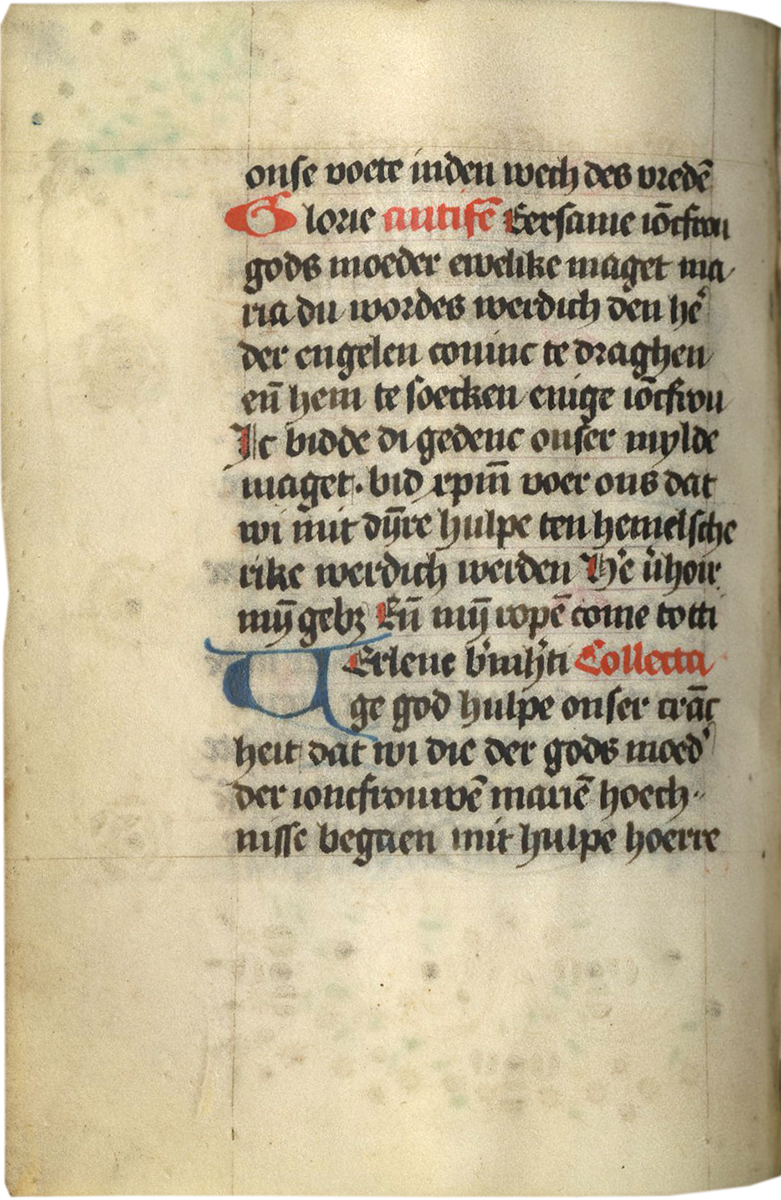 onse voete inden wech des vredē
Glorie antifē Eersame iōcfrou
gods moeder ewelike maget ma
ria du wordes werdich den hē
der engelen coninc te draghen
eñ hem te soecken enige iōcfrou
Ic bidde di gedenc onser mylde
maget. bid xpm̄ voer ons dat
wi mit dȳre hulpe ten hemelsche
rike werdich werden He v̄hoir
mȳ geb Eñ mȳ ropē come totti
Erlene Collecta
ge god hulpe onser crāc
heit dat wi die der gods moed
der ioncfrouwē mariē hoech
nisse begaen mit hulpe hoerre